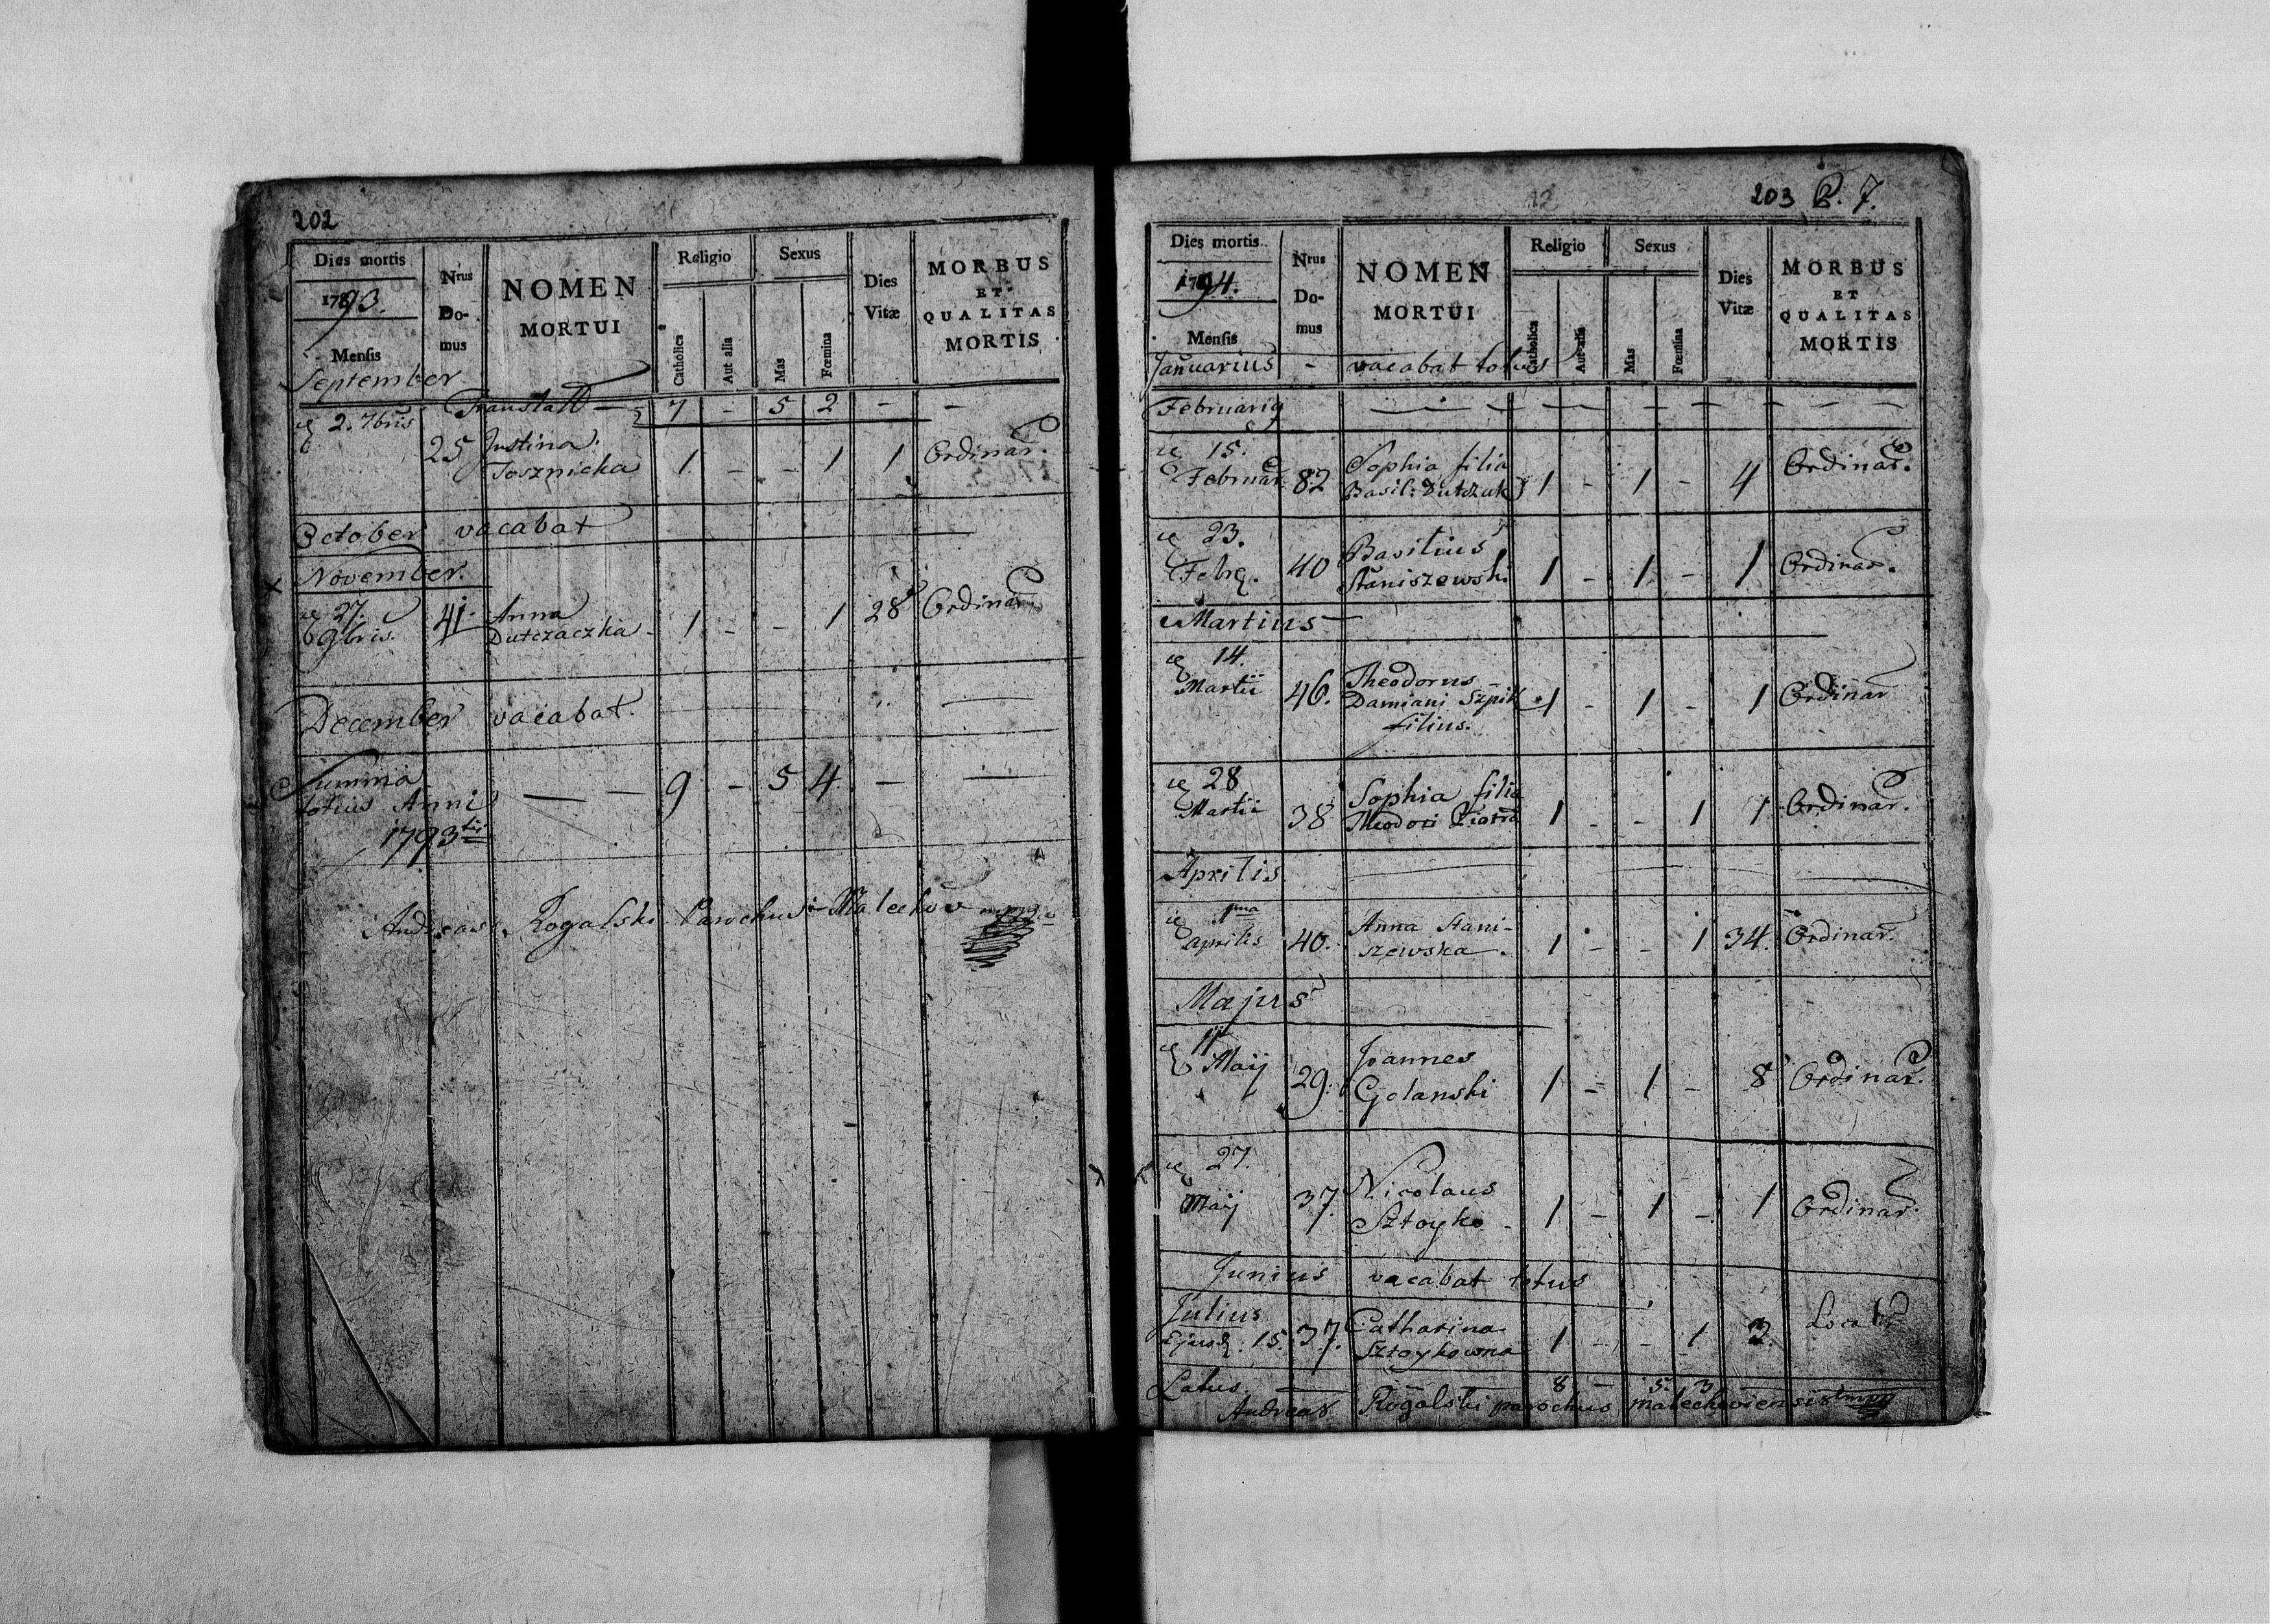 202
Dies mortis
1793.
Mensis
September
Nrus
Do-
mus
NOMEN
MORTUI
Religio
Catholica
Aut alia
Sexus
Mas
Fœmina
Dies
Vitæ
MORBUS
ET
QUALITAS
MORTIS
7 - 5 2 - -
2. 7bris
25 Justina
Tosznicka 1 - - 1 1 Ordinar.
October vacabat
November.
27.
9bris. 41. Anna
Dutczaczka 1 - - 1 28 Ordinar.
December vacabat.
Summa
totius Anni — 9 - 5 4 - —
1793tii
Andreas Rogalski Parochus Malechov mpp
203 P. 7.
Dies mortis
1794.
Mensis
Nrus
Do-
mus
NOMEN
MORTUI
Religio
Catholica
Aut alia
Sexus
Mas
Fœmina
Dies
Vitæ
MORBUS
ET
QUALITAS
MORTIS
Januarius - vacabat totus
Februarig
15.
Februar. 82 Sophia filia
Basil: Dutczak 1 - 1 - 4 Ordinar.
23.
Febrz. 40 Basilius
Staniszewski 1 - 1 - 1 Ordinar.
Martius
14.
Martii 46. Theodorus
Damiani Szpik 1 - 1 - 1 Ordinar
filius.
28
Martii 38 Sophia filia
Theodori 1 - - 1 1 Ordinar.
Aprilis.
1ma
aprilis 40. Anna Stani-
szewska. 1 - - 1 34. Ordinar.
Majus
11
Maij 29. Joannes
Golanski 1 - 1 - 8 Ordinar.
27.
Maij 37. Nicolaus
Sztoyko - 1 - 1 - 1 Ordinar.
Junius vacabat totus
Julius
Ejusd. 15. 37. Catharina
Sztoykowna 1 - - 1 2.
Latus — — 8 - 5. 3
Andreas Rogalski parochus malechoviensis mpp